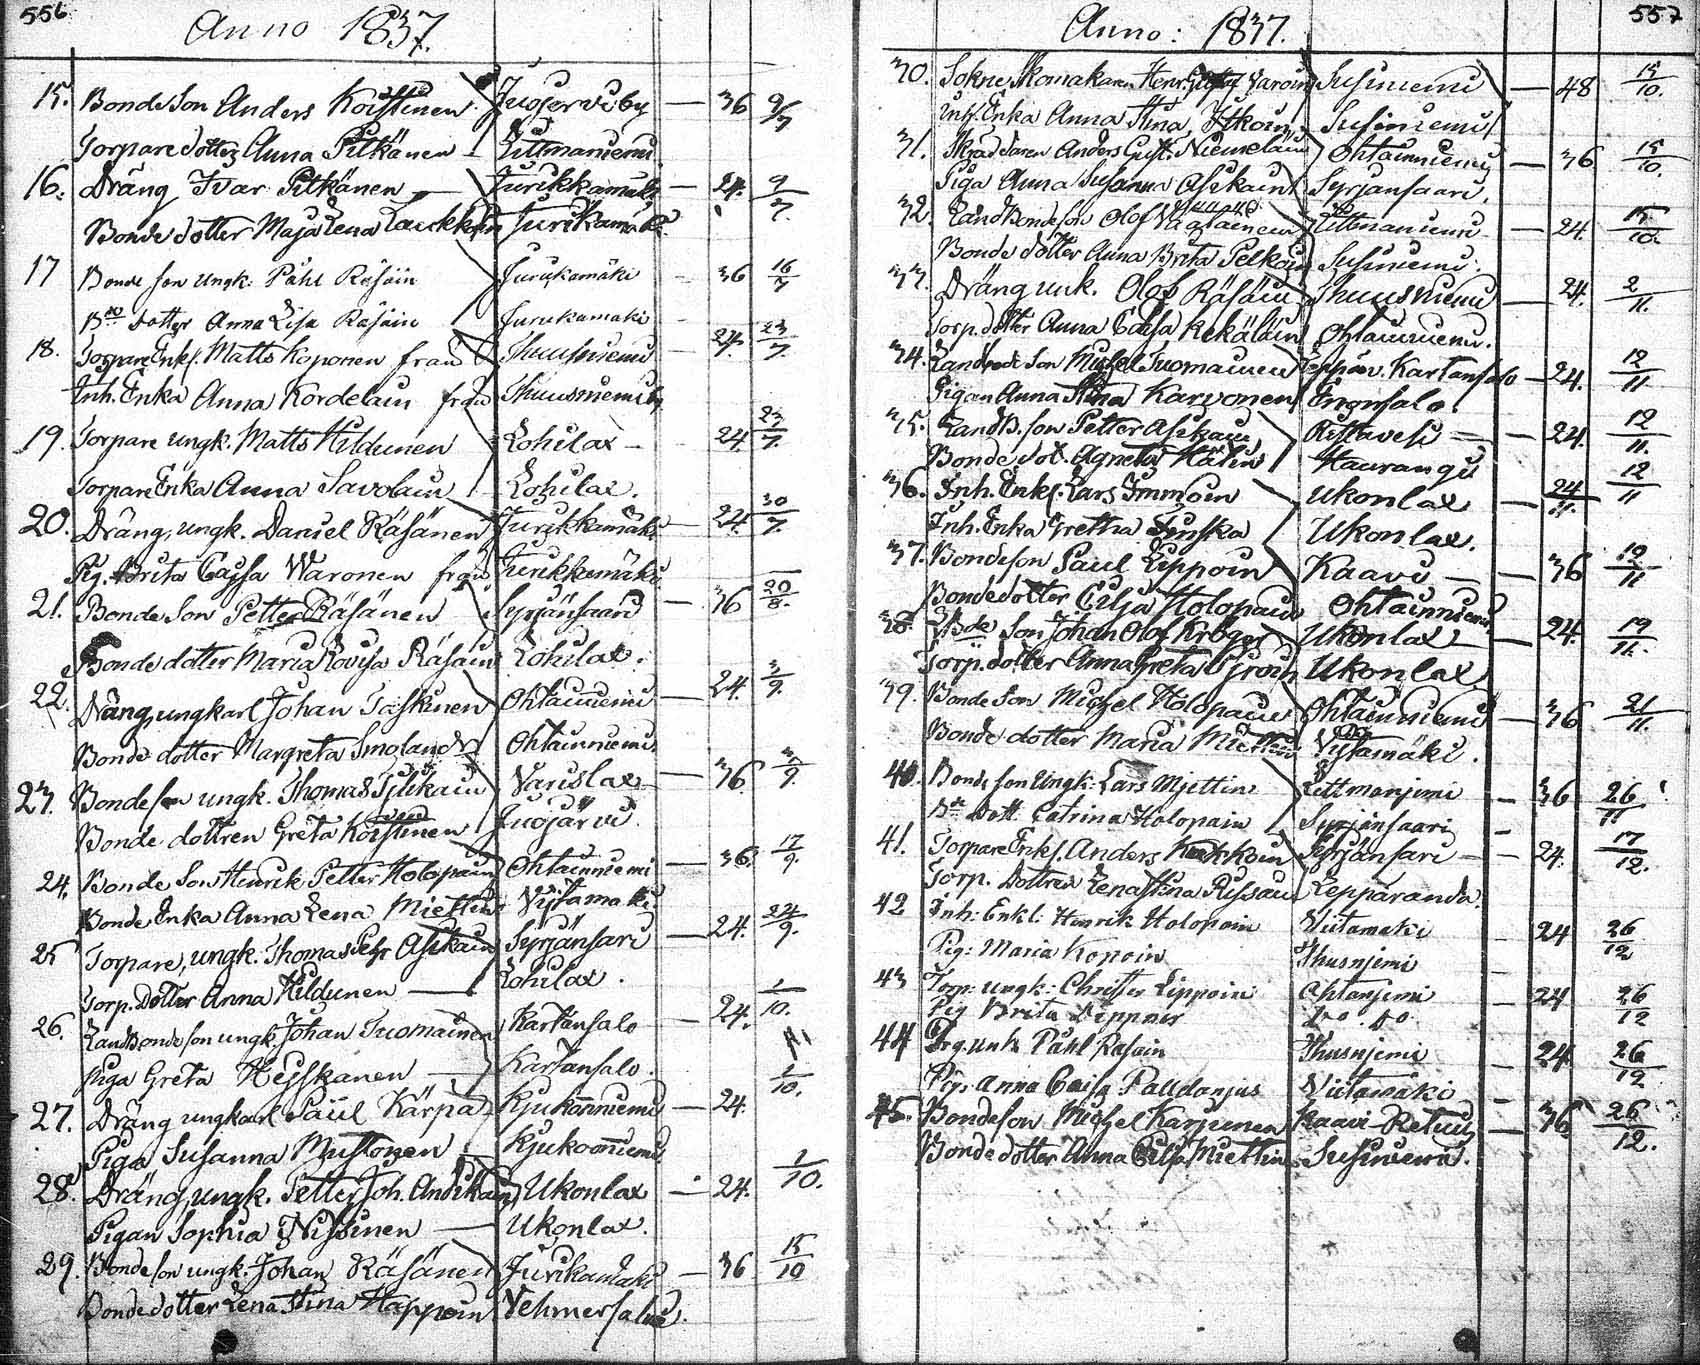 556
Anno 1837.
15. Bonde Son Anders Koistinen Juojervi by — 36 9/7
Torpare dotter Anna Pitkänen Littmaniemi
16. Dräng Ivar Pitkänen — Jurikkamäki — 24. 9/7.
Bonde dotter Maja Lena Jurikamäki
17 Bonde son ungk: Påhl Räsäin Jurukamäki - 36 16/7
Bde dotter Anna Lisa Räsäin Jurukamäki
18. Torpare Enkl. Matts Koponen från Thuusniemi — 24. 23/7.
Inh. Enka Anna Kordelain från Thuusniemi by
19. Torpare ungk. Matts Hildunen Lohilax — 24. 23/7.
Torpare Enka Anna Savolain Lohilax.
20. Dräng, ungk. Daniel Räsänen Jurikkamäki — 24. 30/7.
Pig. Brita Cajsa Waronen från Jurikkamäki
21. Bonde Son Petter Räsänen Syrjänsaari — 36 20/8.
Bonde dotter Maria Lovisa Räsäin Lohilax.
22. Dräng, ungkarl Johan Taskinen Ohtainniemi — 24. 3/9.
Bonde dotter Margreta Smolander Ohtainniemi
23. Bonde son ungk. Thomas Varislax — 36. 3/9.
Bonde dottren Greta Koistinen Juojärvi.
24. Bonde Son Henrik Petter Holopain Ohtainniemi — 36. 17/9.
Bonde Enka Anna Lena Miettin Viitamäki
25 Torpare, ungk. Thomas Petr Asikain Syrjänsari — 24. 24/9.
Torp. Dotter Anna Hildunen — Lohilax.
26. Landbonde son ungk. Johan Tuomainen Kartansalo — 24. 1/10.
Piga Greta Heiskanen — Kartansalo.
27. Dräng ungkarl Paul Kärpä Kjukonniemi — 24. 1/10.
Piga Susanna Mustonen — Kjukonniemi
28. Dräng, ungk. Petter Joh. Ukonlax — 24. 1/10.
Pigan Sophia Nissinen — Ukonlax.
29. Bonde son ungk. Johan Räsänen Jurikamäki — 36 15/10
Bonde dotter Lena Stina Happoin Vehmersalmi.
557
Anno: 1837.
30. Sokne Skomakaren Henr. Susiniemi — 48 15/10.
Inh. Enka Anna Stina Itkoin Susiniemi
31. Skräddaren Anders Gust. Niemelain Ohtainniemi — 36 15/10.
Piga Anna Susanna Asikain Syrjänsaari.
32. Landbonde son Olof Littmaniemi — 24. 15/10.
Bonde dotter Anna Brita Pelkoin Susiniemi.
33. Dräng unk. Olof Räsäin Thuusniemi — 24. 2/11.
Torp. dotter Anna Cajsa Kekäläin Ohtainniemi.
34. Landbonde Son Michel Tuomainen Kartansalo — 24. 12/11
Pigan Anna Stina Karvonen Enonsalo
35. Landb. son Petter Asikain Ristavesi — 24. 12/11.
Bonde dot. Agneta Hälin Haurangi
36. Inh. Enkl. Lars Immoin Ukonlax — 24 12/11
Inh. Enka Gretha Tuiska Ukonlax.
37. Bondeson Paul Lippoin Kaavi — 36 19/11
Bondedotter Cilja Holopain Ohtainniemi
38. Bde Son Johan Olof Kröger Ukonlax — 24. 19/11.
Torp. dotter Anna Greta Ukonlax
39. Bonde Son Michel Holopain Ohtainniemi — 36 21/11.
Bonde dotter Maria Miettin Viitamäki.
40. Bonde son Ungk: Lars Miettin Littmanjemi — 36 26/11
Bde Dott Catrina Holopain Syrjänsaari
41. Torpare Enkl. Anders Syrjänsari — 24. 17/12.
Torp. Dottren Lena Stina Rissain Lepparanda.
42 Inh: Enkl: Henrik Holopain Viitamäki 24 26/12
Pig: Maria Kopoin Thusnjemi
43 Torp: ungk: Christer Lippoin Ohtanjemi — 24 26/12
Pig Brita Do. Do
44 Drg. unk Påhl Räsäin Thusnjemi — 24 26/12
Pig: Anna Caisa Palldanjus Viitamäki
45. Bondeson Michel Karjunen Kaavi — 36 26/12.
Bonde dotter Anna Cilja Miettin Susiniemi.